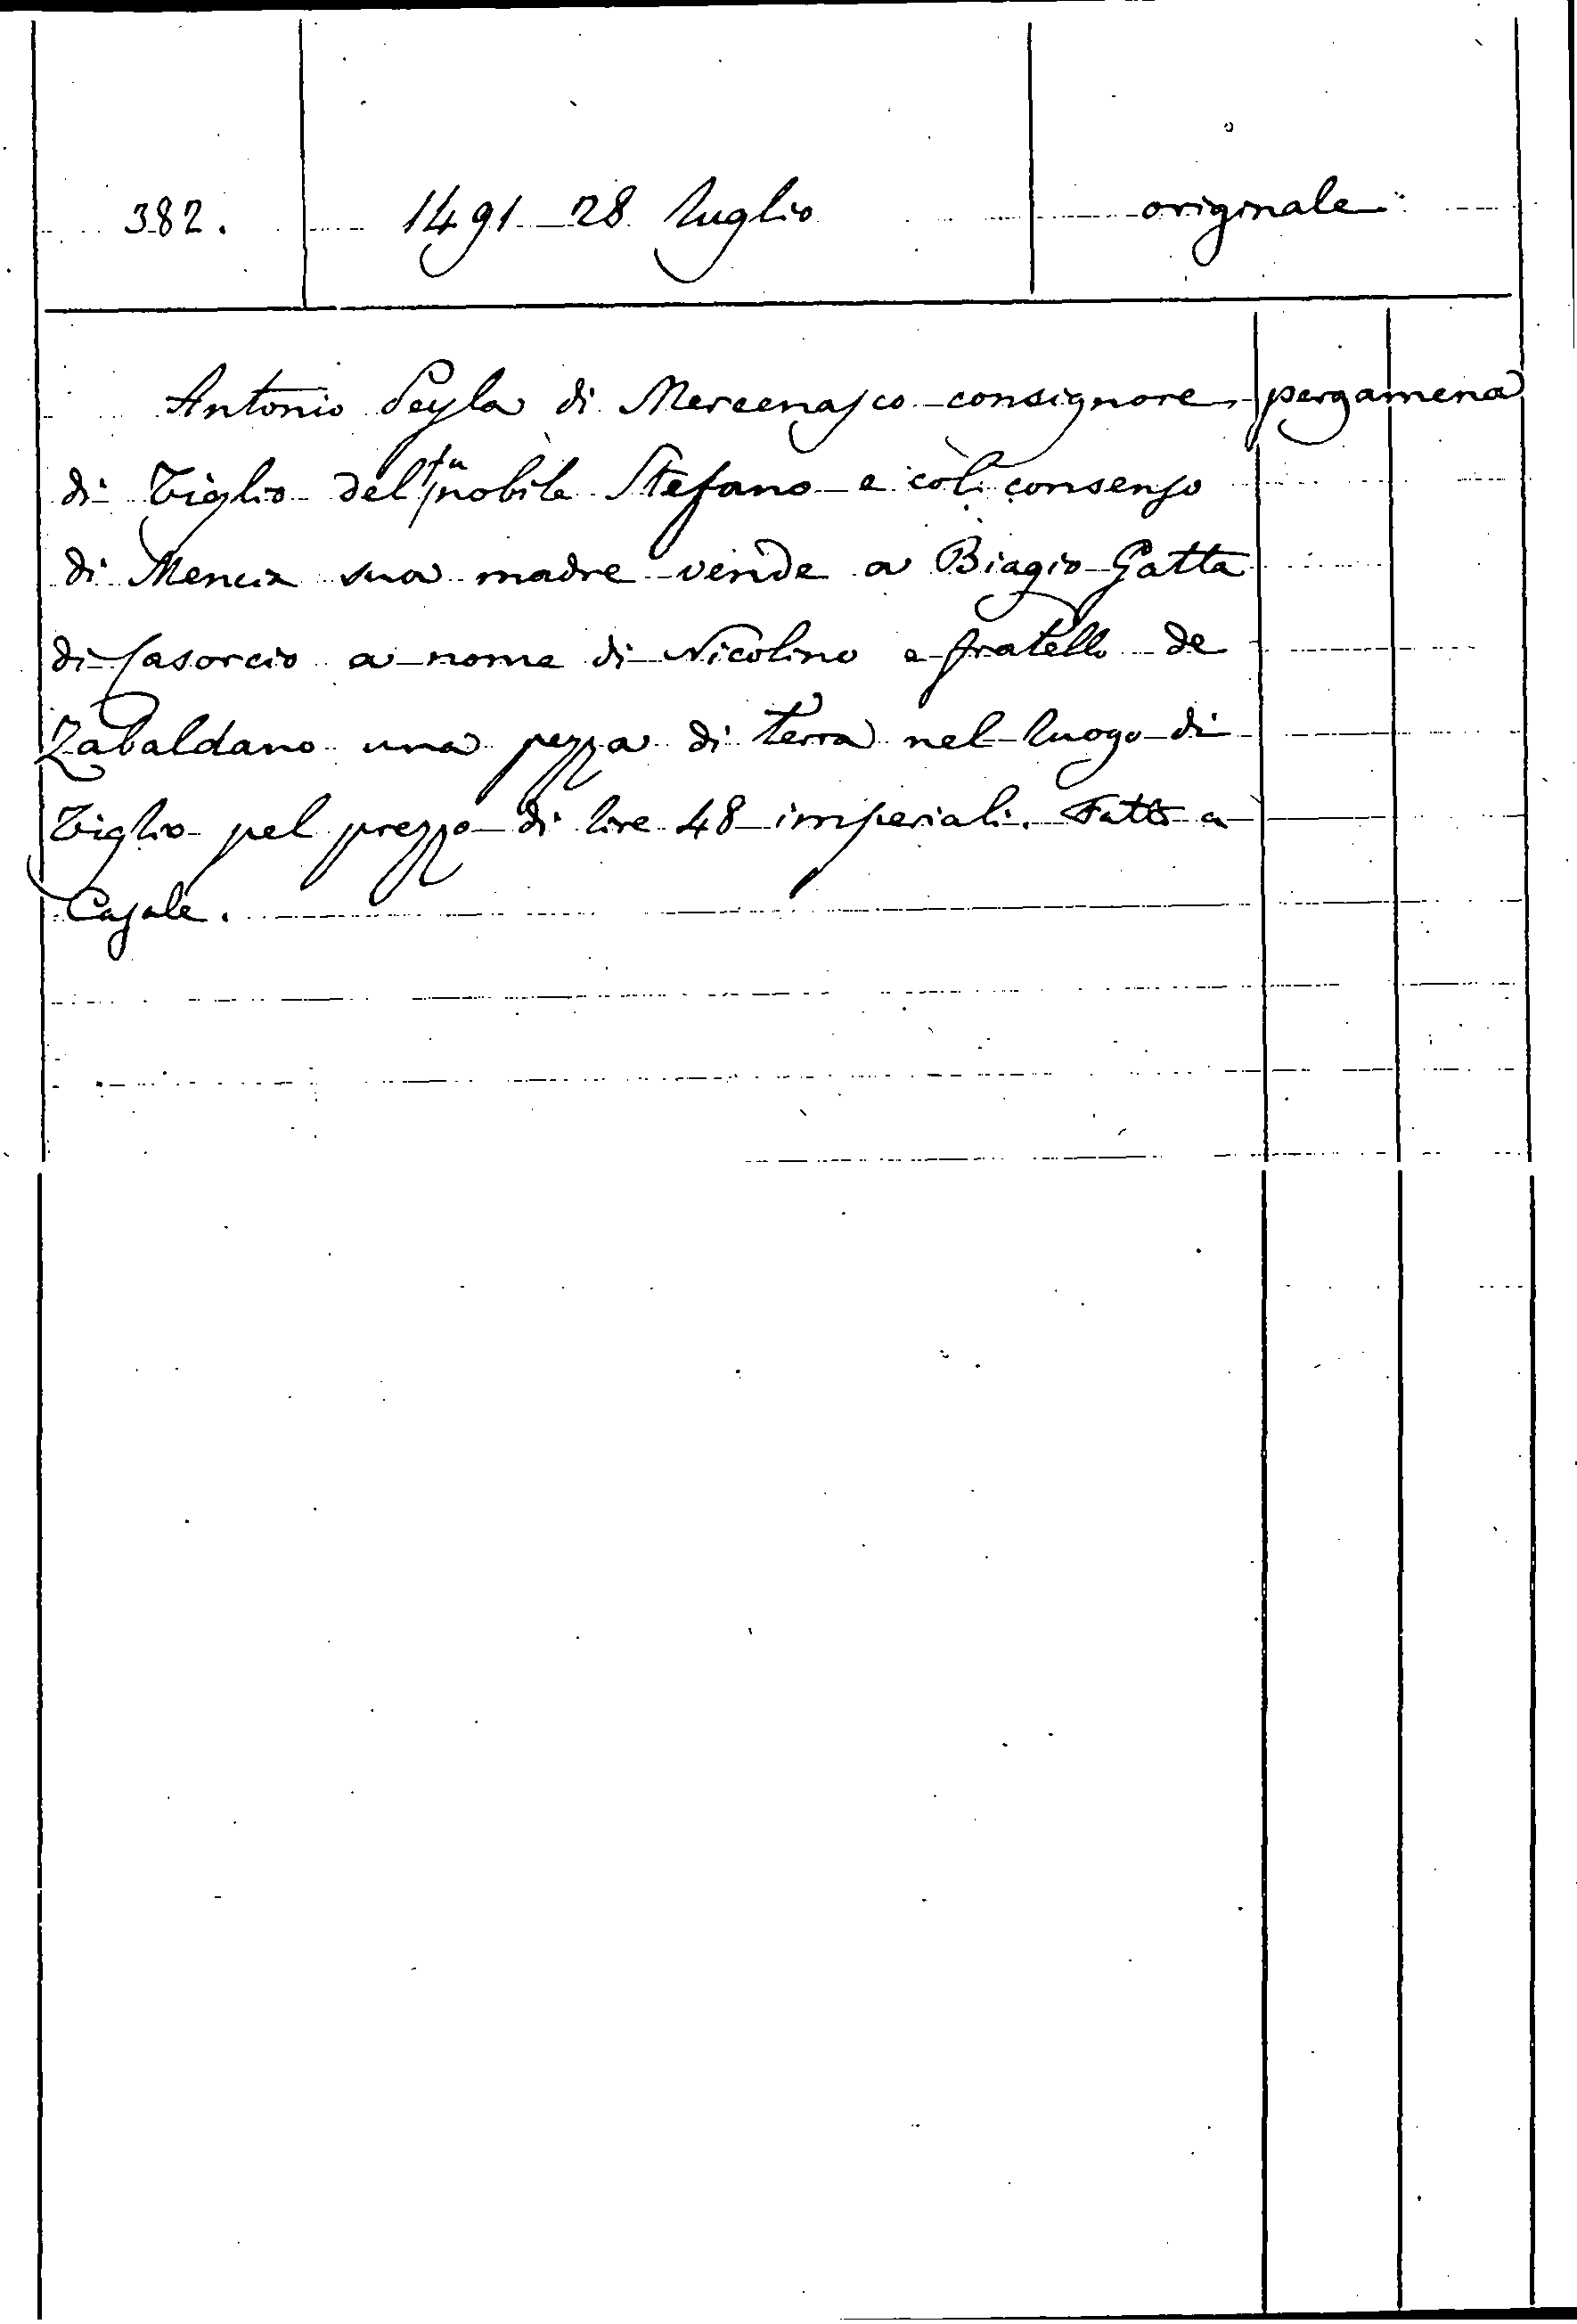 382. 1491 28 luglio originale
Antonio Peyla di Mercenasco consignore pergamena
di Tiglio del fu nobile Stefano e col consenso
di Mencia sua madre vende a Biagio Gatta
di Casorcio a nome di Nicolino e fratello de
Zabaldano una pezza di terra nel luogo di
Tiglio pel prezzo di lire 48 imperiali. Fatto a
Casale.